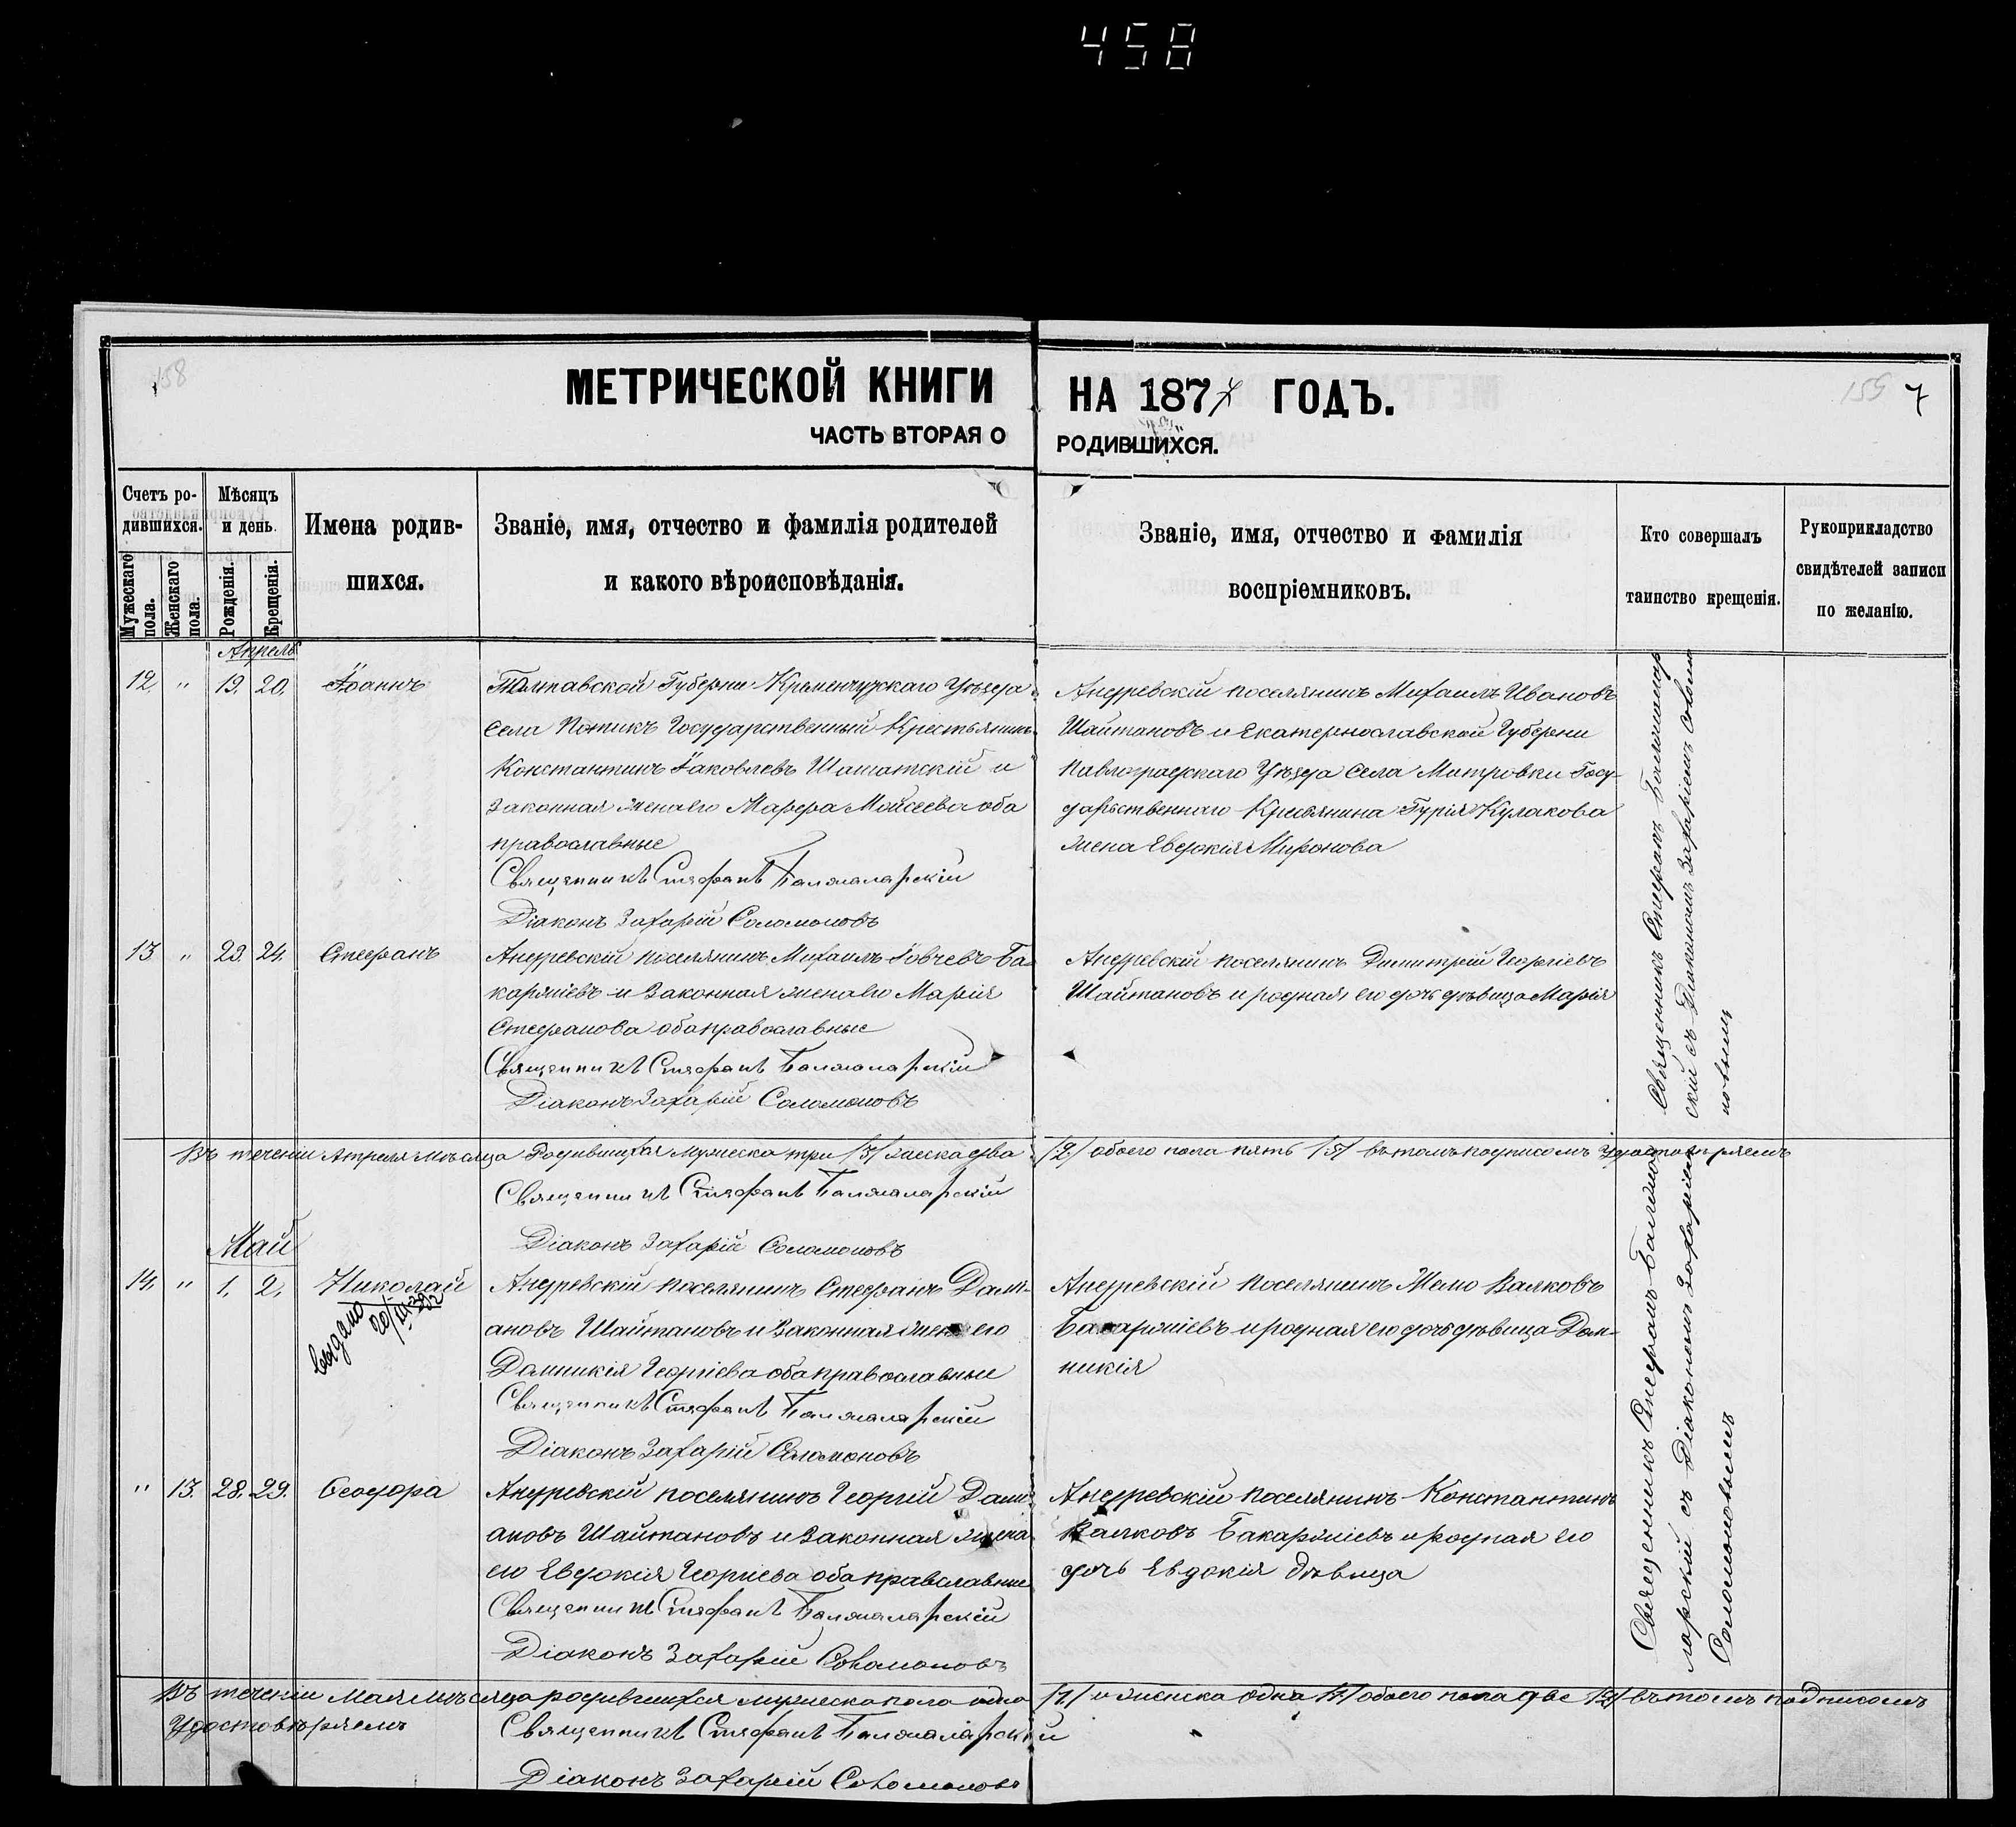 458
158
МЕТРИЧЕСКОЙ КНИГИ НА 1874 ГОДЪ.
7
ЧАСТЬ ВТОРАЯ О РОДИВШИХСЯ.
Счетъ ро-
дившихся.
Мужескаго пола.
Женскаго пола.
Мѣсяцъ
и день.
Рожденія.
Крещенія.
Имена родив-
шихся.
Званіе, имя, отчество и фамилія родителей
и какого вѣроисповѣданія.
Званіе, имя, отчество и фамилія
воспріемниковъ.
Кто совершалъ
таинство крещенія.
Рукоприкладство
свидѣтелей записи
по желанію.
Апрель
12. " 19. 20. Іоаннъ
Полтавской Губерни Кременчугскаго Уѣзда
села Потикъ Государственный Крестьянинъ
Константинъ Іаковлевъ и
законная жена его Марфа Моисеева оба
православные
Священникъ Стефанъ Балжаларскій
Діаконъ Захарій Соломоновъ
Андревскій поселянинъ Михаилъ Ивановъ
Шайтановъ и Екатернославской Губерни
Павлоградскаго Уѣзда Села Митровки Госу-
дарьственнаго Кресьянина Гурія Кулакова
жена Евдокія Миронова
13 " 23. 24. Стефанъ
Андревскій поселянинъ Михаилъ Іовчевъ Ба-
каржіевъ и Законная жена его Марія
Стефанова оба православные
Священникъ Стефанъ Балжаларскій
Діаконъ Захарій Соломоновъ
Андревскій поселянинъ Димитрій Георгіевъ
Шайтановъ и родная его дочь дѣвица Марія
Священникъ Стефанъ Балжалар
скій съ Діакономъ Захаріемъ Соломо
новымъ
Въ теченіи Апреля мѣсяца Родившихся мужеска три /3/ женска два /2/ обоего пола пять /5/ въ томъ подписомъ Удостовѣряемъ
Священникъ Стефанъ Балжаларскій
Діаконъ Захарій Соломоновъ
Май
14. " 1. 2. Николай
выдано
Андревскій поселянинъ Стефанъ Дами-
ановъ Шайтановъ и Законная жена его
Домникія Георгіева оба православные
Священникъ Стефанъ Балжаларскій
Діаконъ Захарій Соломоновъ
Андревскій поселянинъ Желю Валковъ
Бакаржіевъ и родная его дочь дѣвица Дом-
никія
" 13. 28. 29. Ѳеодора
Андревскій поселянинъ Георгій Дами-
ановъ Шайтановъ и Законная жена
его Евдокія Георгіева оба православные
Священникъ Стефанъ Балжаларскій
Діаконъ Захарій Соломоновъ
Андревскій поселянинъ Константинъ
Валковъ Бакаржіевъ и родная его
дочь Евдокія дѣвица
Священникъ Стефанъ Балжа
ларскій съ Діакономъ Захаріемъ
Соломоновымъ
Въ теченіи Мая мѣсяца родившихся мужеска пола одно /1/ и женска одна /1/ обоего пола две /2/ въ томъ подписомъ
Удостовѣряемъ
Священникъ Стефанъ Балжаларскій
Діаконъ Захарій Соломоновъ